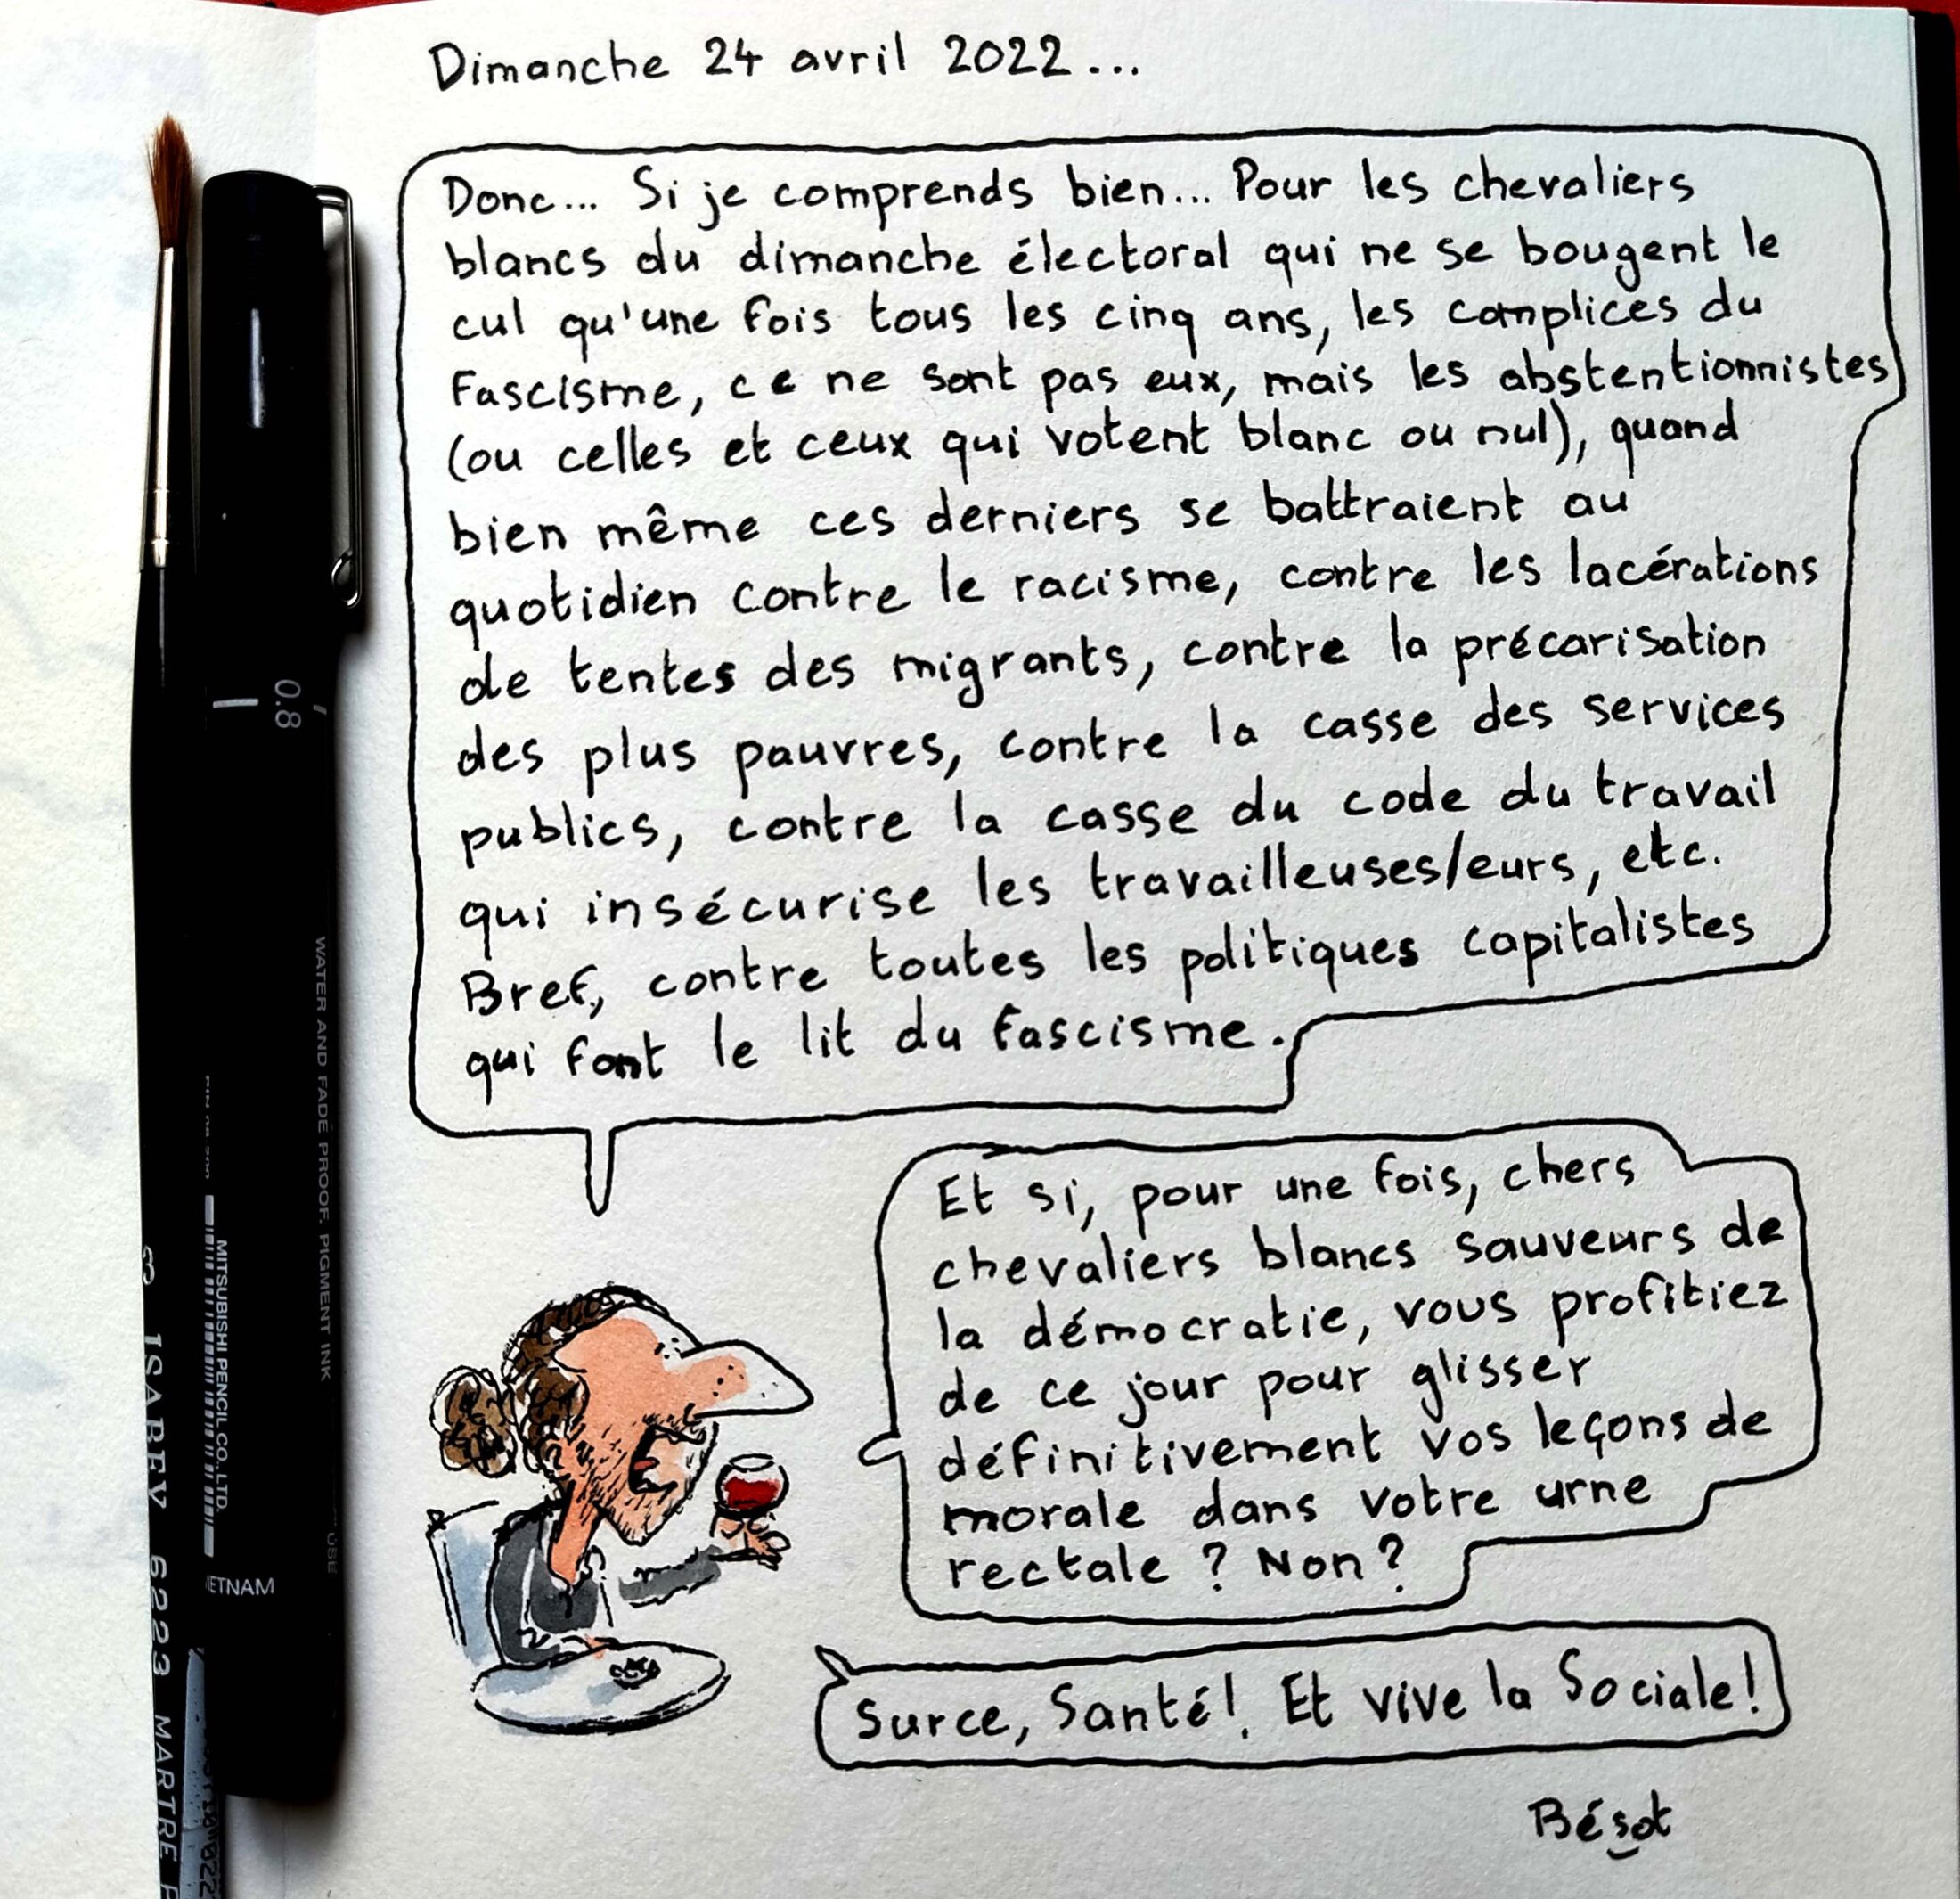 Dimanche 24 avril 2022...
Donc... Si je comprends bien... Pour les chevaliers
blancs du dimanche électoral qui ne se bougent le
cul qu'une fois tous les cinq ans, les complices du
Fascisme, ce ne sont pas eux, mais les abstentionnistes
(ou celles et ceux qui votent blanc ou nul), quand
bien même ces derniers se battraient au
quotidien contre le racisme, contre les lacérations
de tentes des migrants, contre la précarisation
des plus pauvres, contre la casse des services
publics, contre la casse du code du travail
qui insécurise les travailleuses/eurs, etc.
Bref, contre toutes les politiques capitalistes
qui font le lit du fascisme.
Et si, pour une fois, chers
chevaliers blancs sauveurs de
la démocratie, vous profitiez
de ce jour pour glisser
définitivement vos leçons de
morale dans votre urne
rectale ? Non ?
Surce, Santé! Et vive la Sociale!
Bésot
0.8
WATER AND FADE PROOF. PIGMENT INK
MITSUBISHI PENCIL CO., LTD.
3 ISABEY 6223 MARTRE